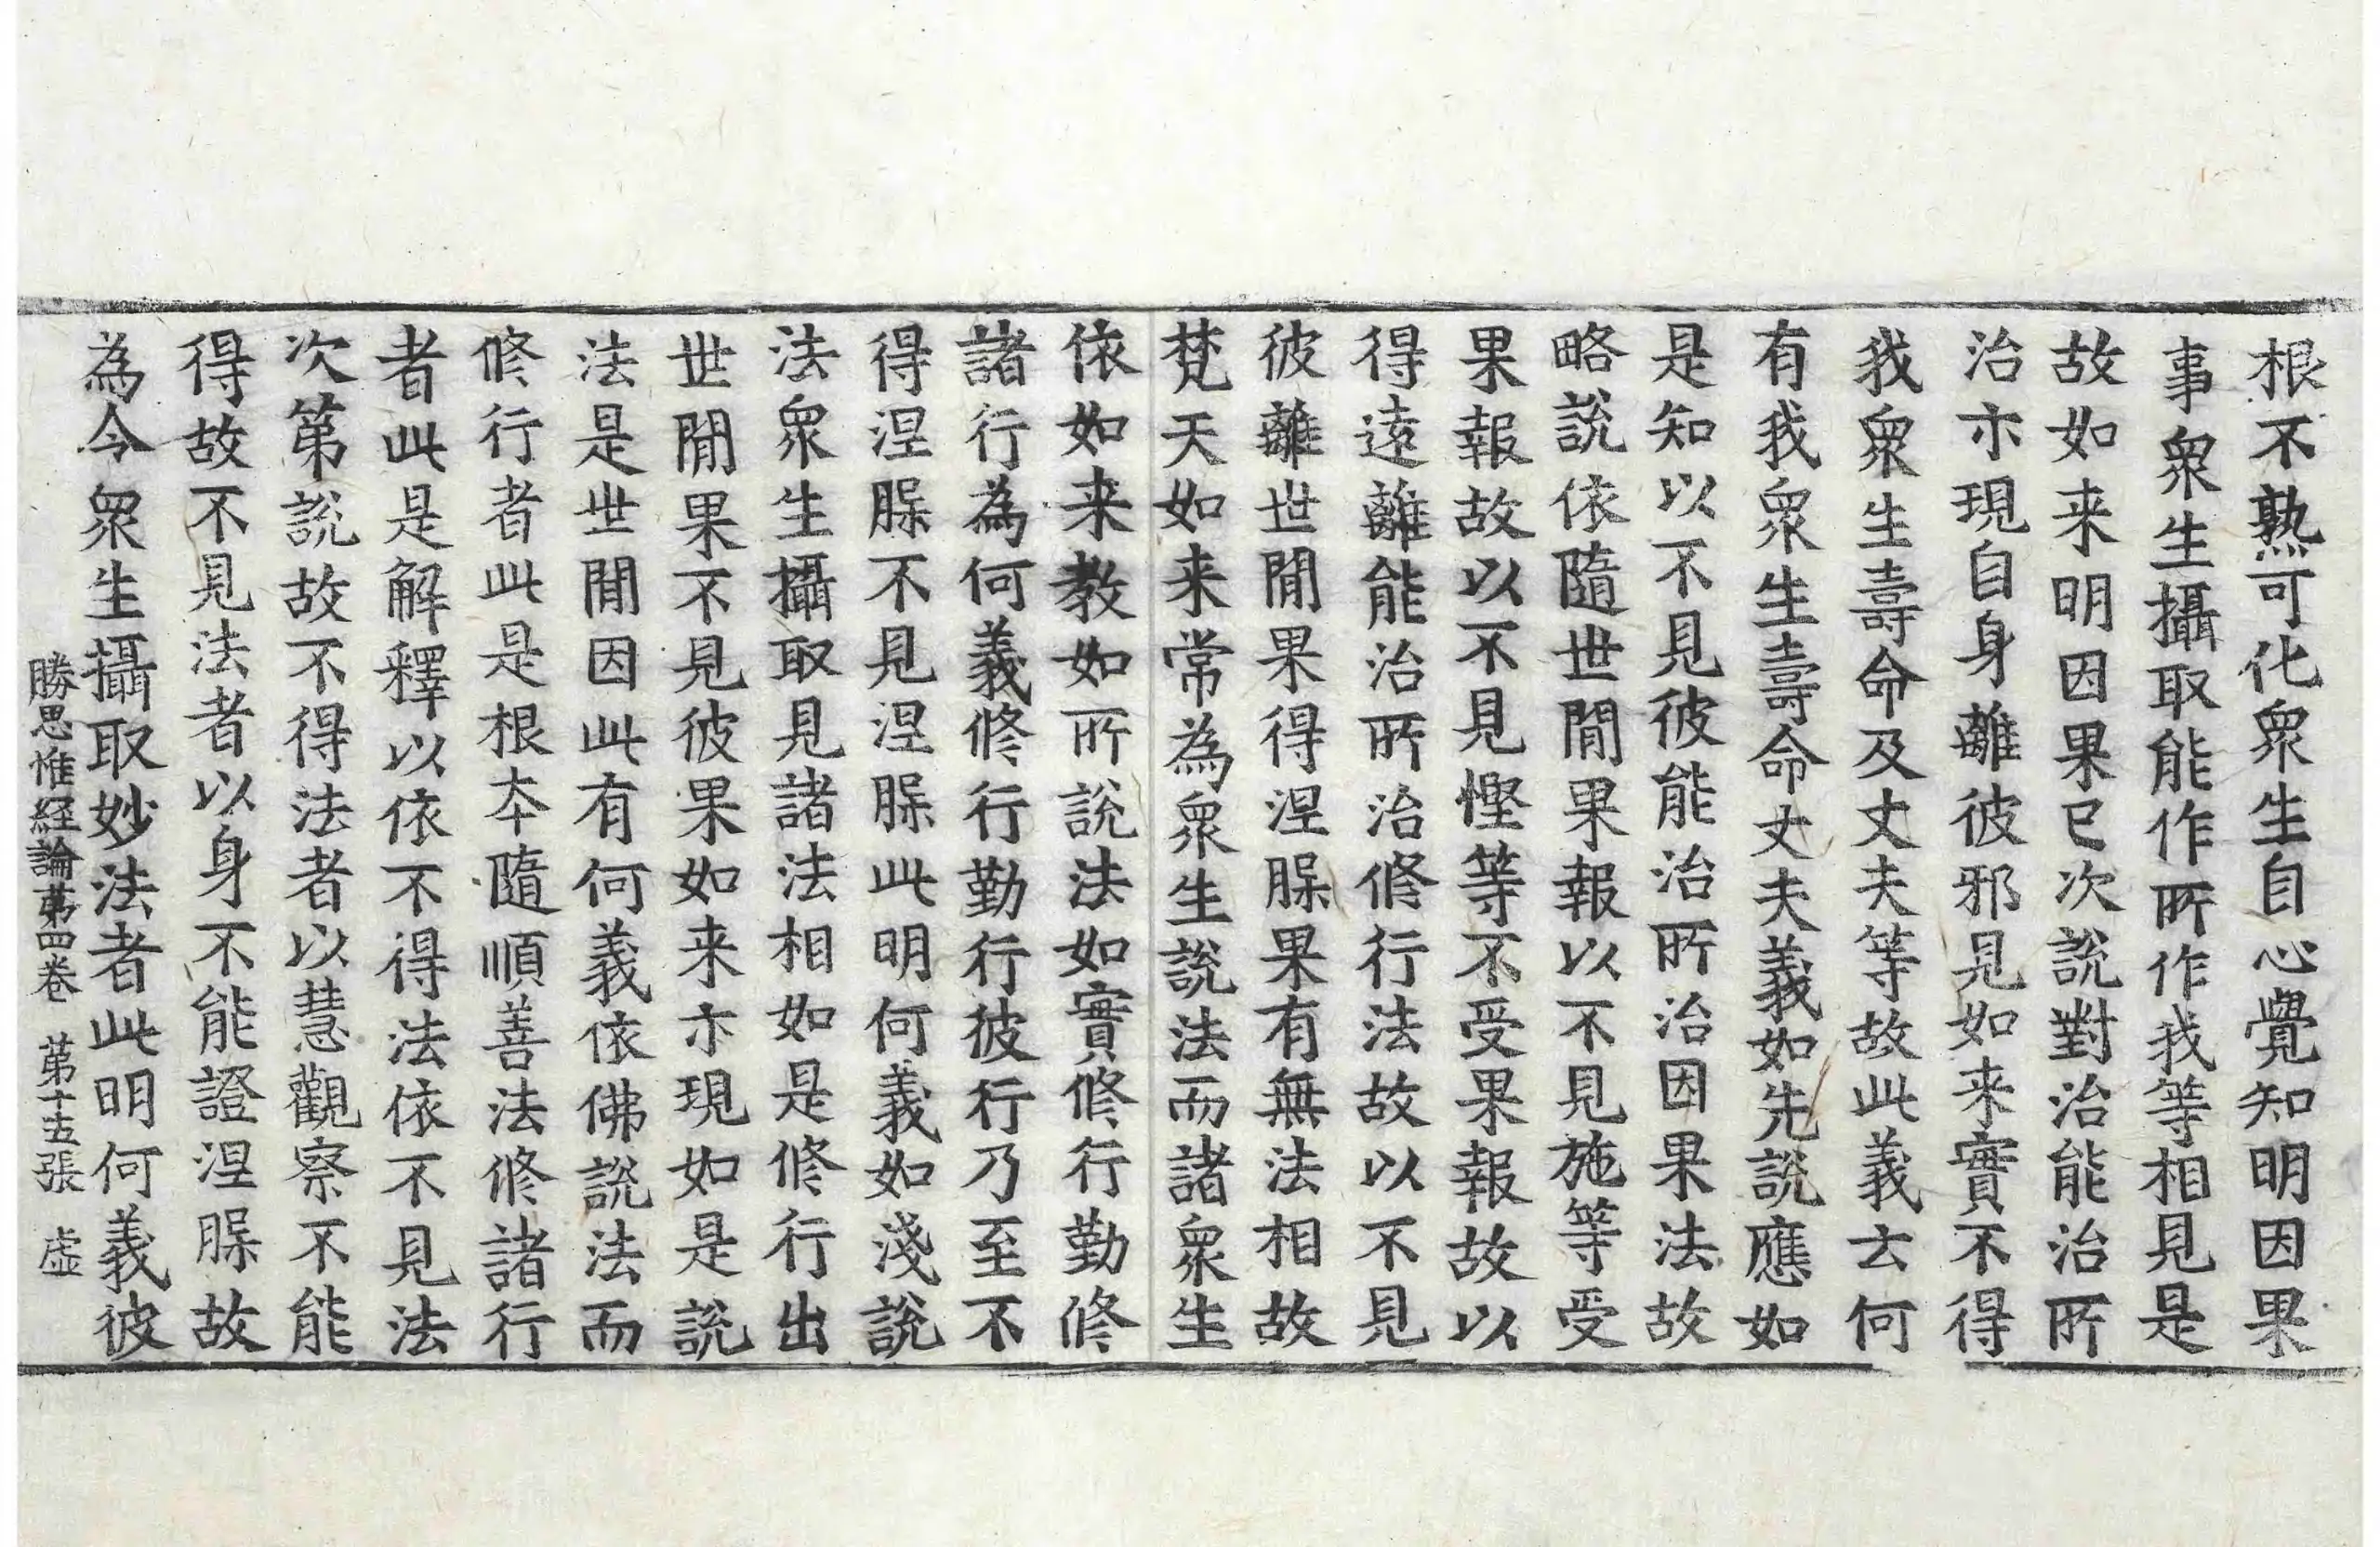 根不熟可化衆生自心覺知明因果
事衆生攝取能作所作我等相見是
故如来明因果已次說對治能治所
治亦現自身離彼邪見如来實不得
我衆生壽命及丈夫等故此義云何
有我衆生壽命丈夫義如先說應如
是知以不見彼能治所治因果法故
略說依隨世間果報以不見施等受
果報故以不見慳等不受果報故以
得遠離能治所治修行法故以不見
彼離世間果得涅槃果有無法相故
梵天如来常為衆生說法而諸衆生
依如来教如所說法如實修行勤修
諸行為何義修行勤行彼行乃至不
得涅槃不見涅槃此明何義如淺說
法衆生攝取見諸法相如是修行出
世間果不見彼果如来亦現如是說
法是世間因此有何義依佛說法而
修行者此是根本隨順善法修諸行
者此是解釋以依不得法依不見法
次第說故不得法者以慧觀察不能
得故不見法者以身不能證涅槃故
為令衆生攝取妙法者此明何義彼
勝思惟経論苐四卷 苐十五張 虛